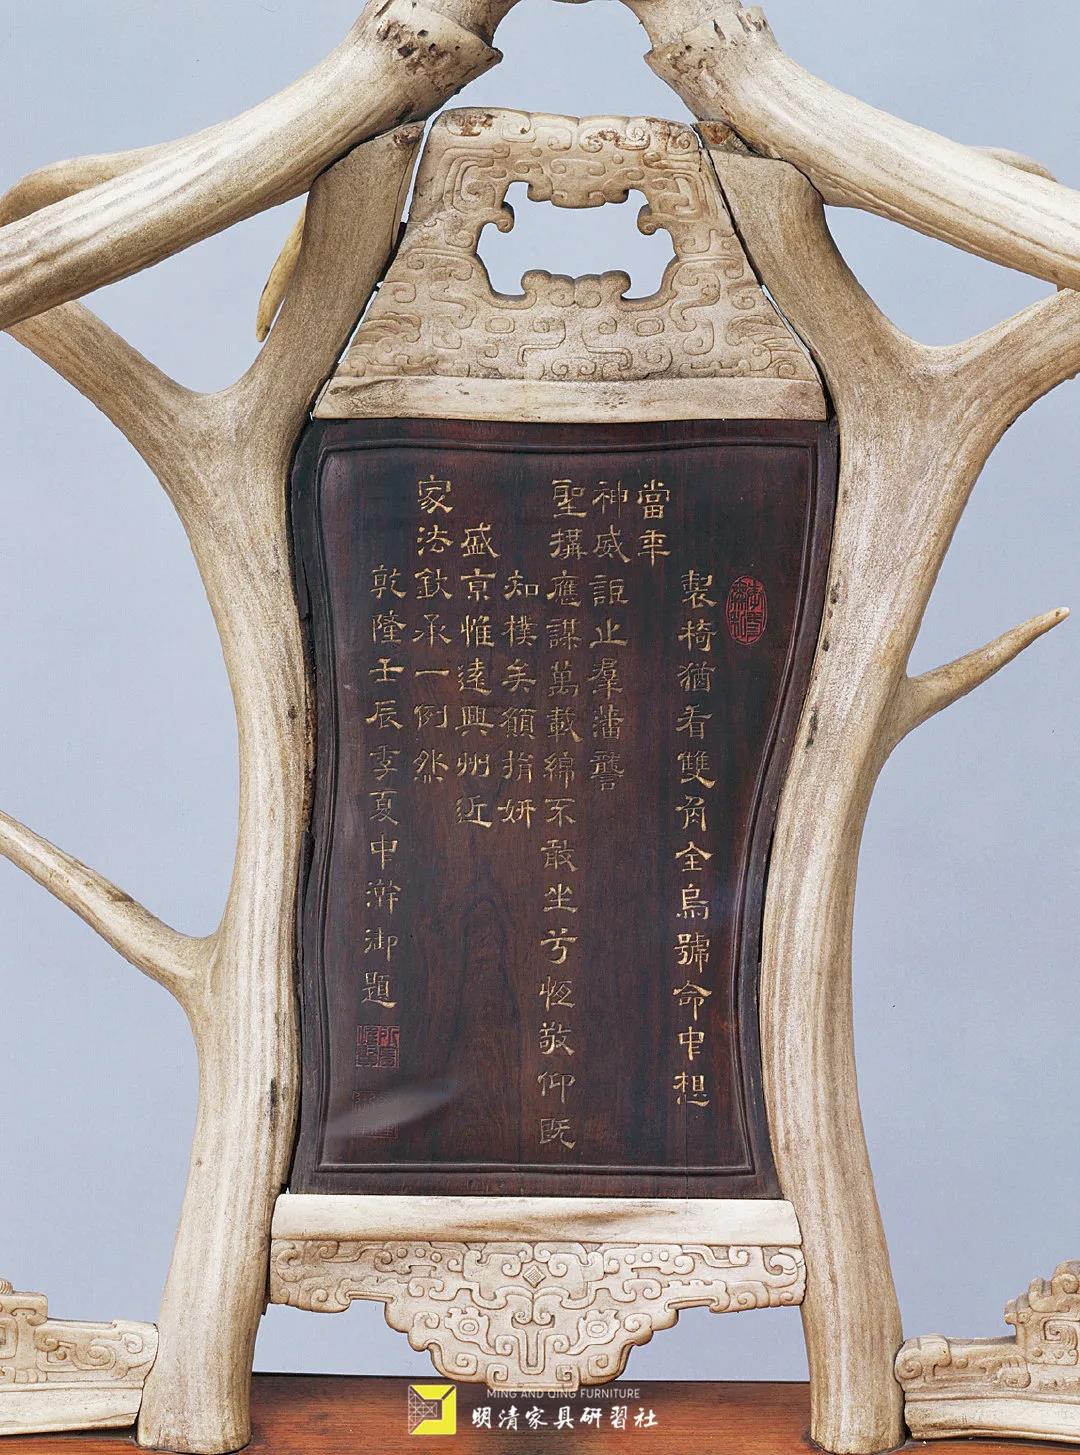 製椅猶看雙角全烏號命中想
當年
神威詎止羣藩讋
聖搆應謀萬載綿不敢坐兮恆敬仰既
知樸矣願捐妍
盛京惟遠興州近
家法欽承一例然
乾隆壬辰季夏中澣御題
所寶惟賢
MING AND QING FURNITURE
明清家具研習社